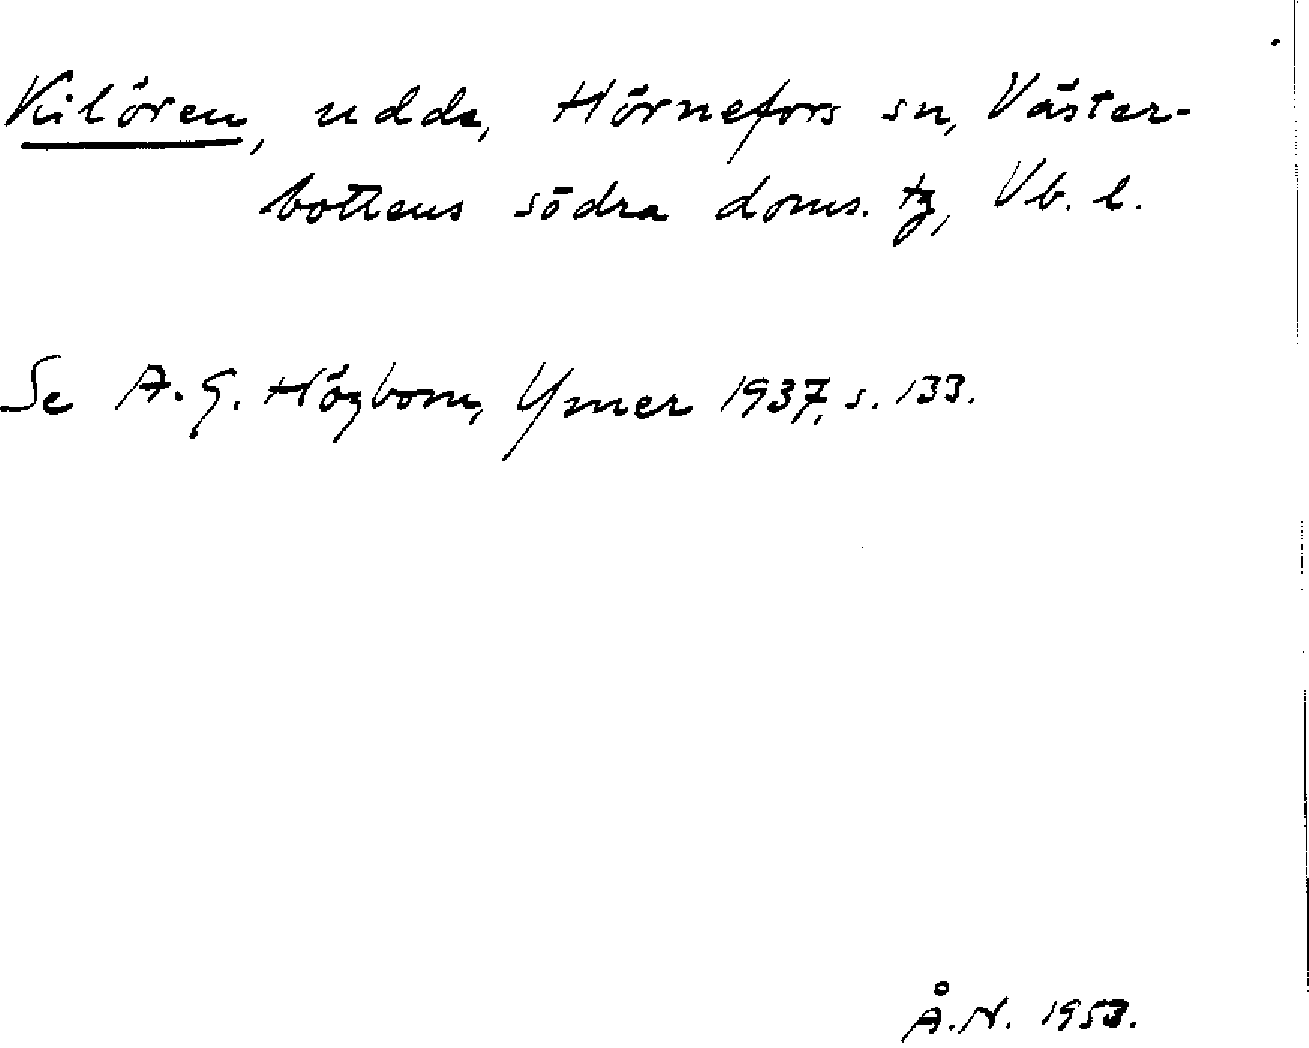 Kilören, udde, Hörnefors sn, Väster-
bottens södra doms. tg, Vb. l.
Se A. G. Högbom, Ymer 1937, s. 133.
Å. N. 1953.